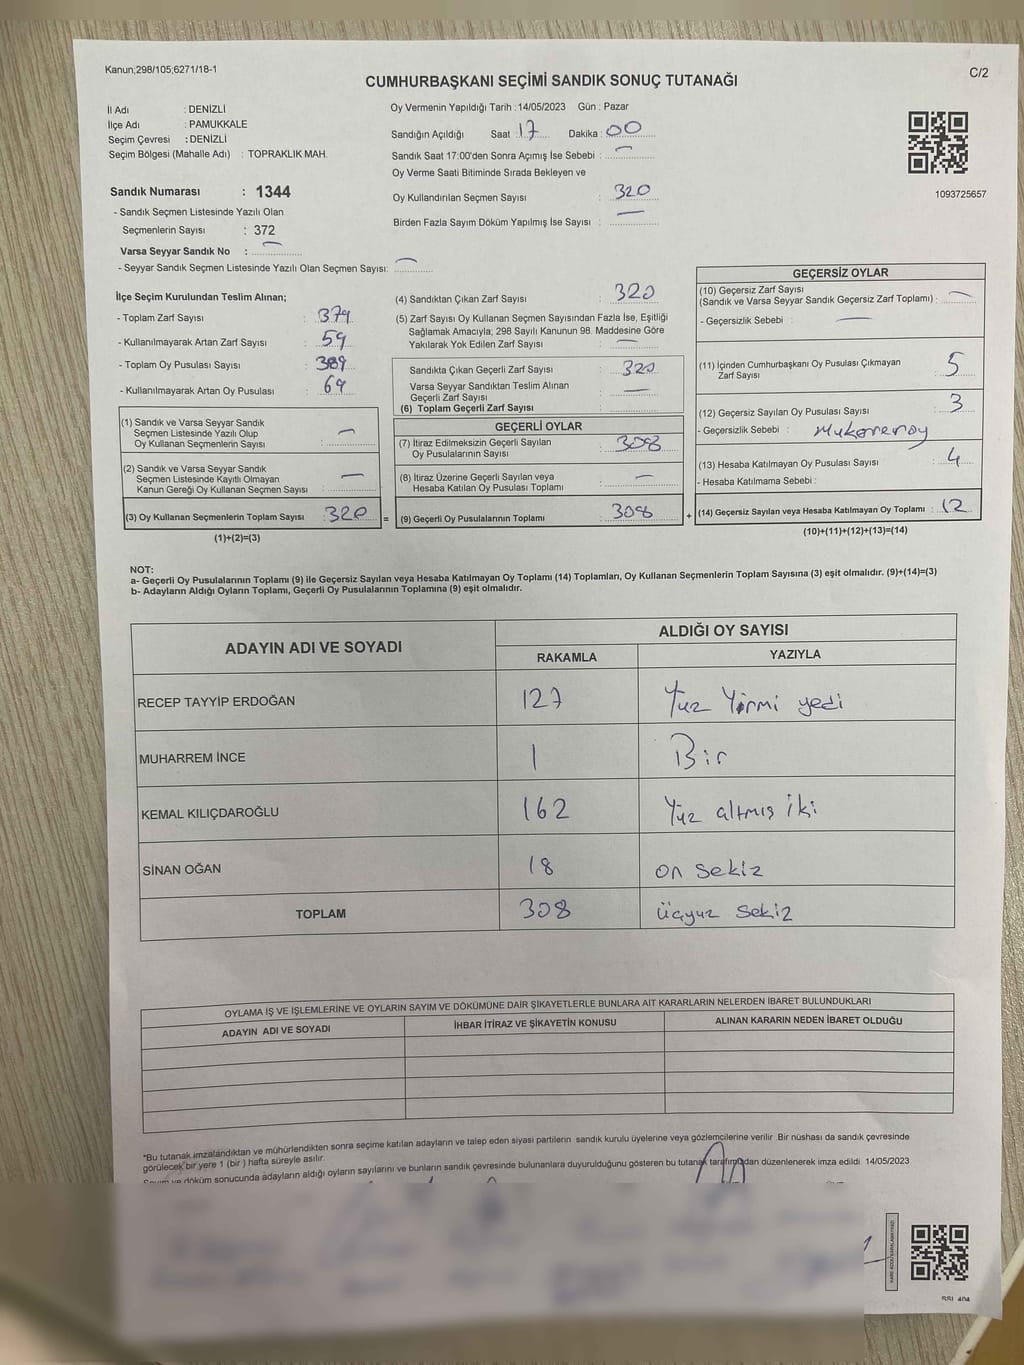 Kanun;298/105;6271/18-1
C/2
CUMHURBAŞKANI SEÇİMİ SANDIK SONUÇ TUTANAĞI
İl Adı : DENİZLİ
İlçe Adı : PAMUKKALE
Seçim Çevresi : DENİZLİ
Seçim Bölgesi (Mahalle Adı) : TOPRAKLIK MAH.
Sandık Numarası : 1344
- Sandık Seçmen Listesinde Yazılı Olan
Seçmenlerin Sayısı : 372
Varsa Seyyar Sandık No : —
- Seyyar Sandık Seçmen Listesinde Yazılı Olan Seçmen Sayısı: —
Oy Vermenin Yapıldığı Tarih : 14/05/2023 Gün : Pazar
Sandığın Açıldığı Saat : 17 Dakika : 00
Sandık Saat 17:00'den Sonra Açımış İse Sebebi : —
Oy Verme Saati Bitiminde Sırada Bekleyen ve
Oy Kullandırılan Seçmen Sayısı : 320
Birden Fazla Sayım Döküm Yapılmış İse Sayısı : —
1093725657
İlçe Seçim Kurulundan Teslim Alınan;
- Toplam Zarf Sayısı : 379
- Kullanılmayarak Artan Zarf Sayısı : 59
- Toplam Oy Pusulası Sayısı : 389
- Kullanılmayarak Artan Oy Pusulası : 69
(1) Sandık ve Varsa Seyyar Sandık
Seçmen Listesinde Yazılı Olup
Oy Kullanan Seçmenlerin Sayısı : —
(2) Sandık ve Varsa Seyyar Sandık
Seçmen Listesinde Kayıtlı Olmayan
Kanun Gereği Oy Kullanan Seçmen Sayısı : —
(3) Oy Kullanan Seçmenlerin Toplam Sayısı : 320
(1)+(2)=(3)
=
(4) Sandıktan Çıkan Zarf Sayısı : 320
(5) Zarf Sayısı Oy Kullanan Seçmen Sayısından Fazla İse, Eşitliği
Sağlamak Amacıyla; 298 Sayılı Kanunun 98. Maddesine Göre
Yakılarak Yok Edilen Zarf Sayısı : —
Sandıkta Çıkan Geçerli Zarf Sayısı : 320
Varsa Seyyar Sandıktan Teslim Alınan
Geçerli Zarf Sayısı : —
(6) Toplam Geçerli Zarf Sayısı :
GEÇERLİ OYLAR
(7) İtiraz Edilmeksizin Geçerli Sayılan
Oy Pusulalarının Sayısı : 308
(8) İtiraz Üzerine Geçerli Sayılan veya
Hesaba Katılan Oy Pusulası Toplamı : —
(9) Geçerli Oy Pusulalarının Toplamı : 308
+
GEÇERSİZ OYLAR
(10) Geçersiz Zarf Sayısı
(Sandık ve Varsa Seyyar Sandık Geçersiz Zarf Toplamı) : —
- Geçersizlik Sebebi : —
(11) İçinden Cumhurbaşkanı Oy Pusulası Çıkmayan
Zarf Sayısı : 5
(12) Geçersiz Sayılan Oy Pusulası Sayısı : 3
- Geçersizlik Sebebi :
(13) Hesaba Katılmayan Oy Pusulası Sayısı : 4
- Hesaba Katılmama Sebebi :
(14) Geçersiz Sayılan veya Hesaba Katılmayan Oy Toplamı : 12
(10)+(11)+(12)+(13)=(14)
NOT:
a- Geçerli Oy Pusulalarının Toplamı (9) ile Geçersiz Sayılan veya Hesaba Katılmayan Oy Toplamı (14) Toplamları, Oy Kullanan Seçmenlerin Toplam Sayısına (3) eşit olmalıdır. (9)+(14)=(3)
b- Adayların Aldığı Oyların Toplamı, Geçerli Oy Pusulalarının Toplamına (9) eşit olmalıdır.
ADAYIN ADI VE SOYADI
ALDIĞI OY SAYISI
RAKAMLA YAZIYLA
RECEP TAYYİP ERDOĞAN 127 Yüz Yirmi yedi
MUHARREM İNCE 1 Bir
KEMAL KILIÇDAROĞLU 162 Yüz altmış iki
SİNAN OĞAN 18 on sekiz
TOPLAM 308 üçyuz sekiz
OYLAMA İŞ VE İŞLEMLERİNE VE OYLARIN SAYIM VE DÖKÜMÜNE DAİR ŞİKAYETLERLE BUNLARA AİT KARARLARIN NELERDEN İBARET BULUNDUKLARI
ADAYIN ADI VE SOYADI İHBAR İTİRAZ VE ŞİKAYETİN KONUSU ALINAN KARARIN NEDEN İBARET OLDUĞU
*Bu tutanak imzalandıktan ve mühürlendikten sonra seçime katılan adayların ve talep eden siyasi partilerin sandık kurulu üyelerine veya gözlemcilerine verilir .Bir nüshası da sandık çevresinde
görülecek bir yere 1 (bir ) hafta süreyle asılır.
Sayım ve döküm sonucunda adayların aldığı oyların sayılarını ve bunların sandık çevresinde bulunanlara duyurulduğunu gösteren bu tutanak tarafımızdan düzenlenerek imza edildi. 14/05/2023